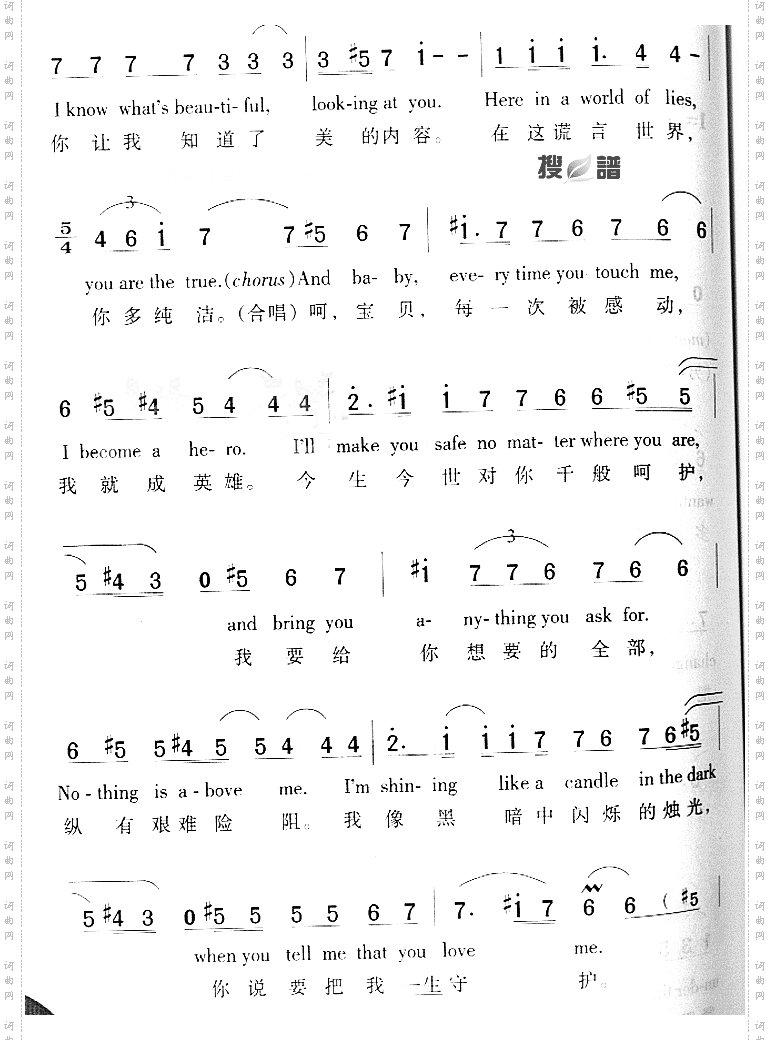 7 7 7 7 3 3 3 | 3 #5 7 i - - | 1 i i i. 4 4 - |
I know what's beau-ti-ful, look-ing at you. Here in a world of lies,
你 让 我 知 道 了 美 的 内 容。 在 这 谎 言 世 界,
搜 譜
5/4 3 4 6 i 7 7 #5 6 7 | #i. 7 7 6 7 6 6 |
you are the true.(chorus)And ba-by, eve-ry time you touch me,
你 多 纯 洁。(合唱) 呵, 宝 贝, 每 一 次 被 感 动,
6 #5 #4 5 4 4 4 | 2. #i i 7 7 6 6 #5 5
I become a he-ro. I'll make you safe no mat-ter where you are,
我 就 成 英 雄。 今 生 今 世 对 你 千 般 呵 护,
5 #4 3 0 #5 6 7 | #i 3 7 7 6 7 6 6 |
and bring you a-ny-thing you ask for.
我 要 给 你 想 要 的 全 部,
6 #5 5 #4 5 5 4 4 4 | 2. i i i 7 7 6 7 6 #5
No-thing is a-bove me. I'm shin-ing like a candle in the dark
纵 有 艰 难 险 阻。 我 像 黑 暗 中 闪 烁 的 烛 光,
5 #4 3 0 #5 5 5 5 6 7 | 7. #i 7 6 6 ( #5
when you tell me that you love me.
你 说 要 把 我 一 生 守 护。